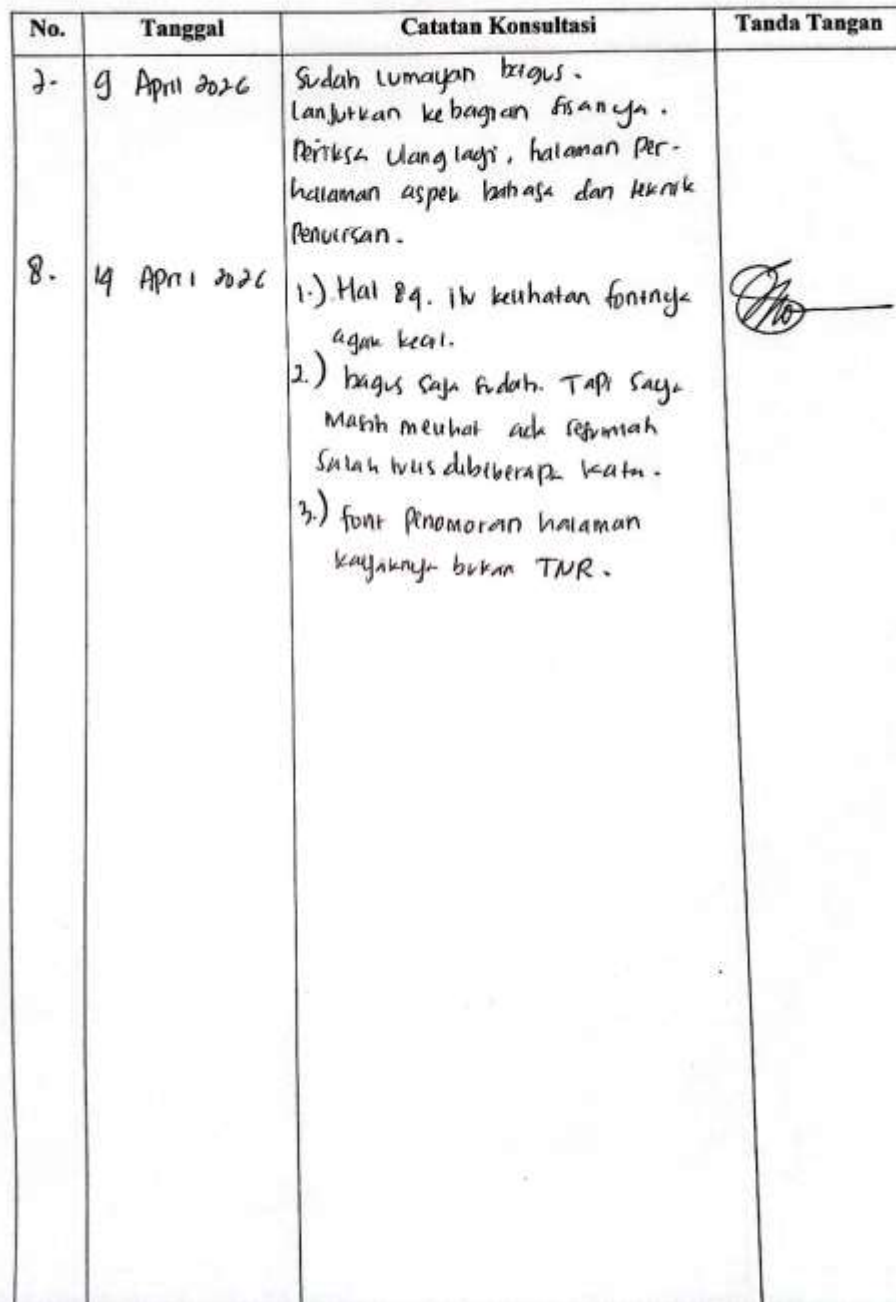 No. Tanggal Catatan Konsultasi Tanda Tangan
7. 9 April 2026 Sudah lumayan bagus.
lanjutkan kebagian sisanya.
Periksa ulang lagi, halaman per-
halaman aspek bahasa dan teknik
Penulisan.
8. 14 April 2026 1.) Hal 84. itu kelihatan fontnya
agak kecil.
2.) bagus saja sudah. Tapi saya
Masih melihat ada sejumlah
Salah tulis dibeberapa kata.
3.) font Penomoran halaman
kayaknya bukan TNR.